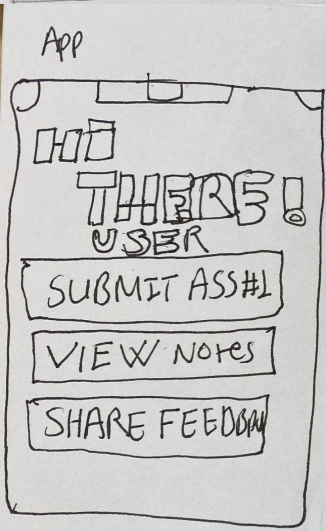 App
HI
THERE!
USER
SUBMIT ASS#1
VIEW Notes
SHARE FEEDBAK